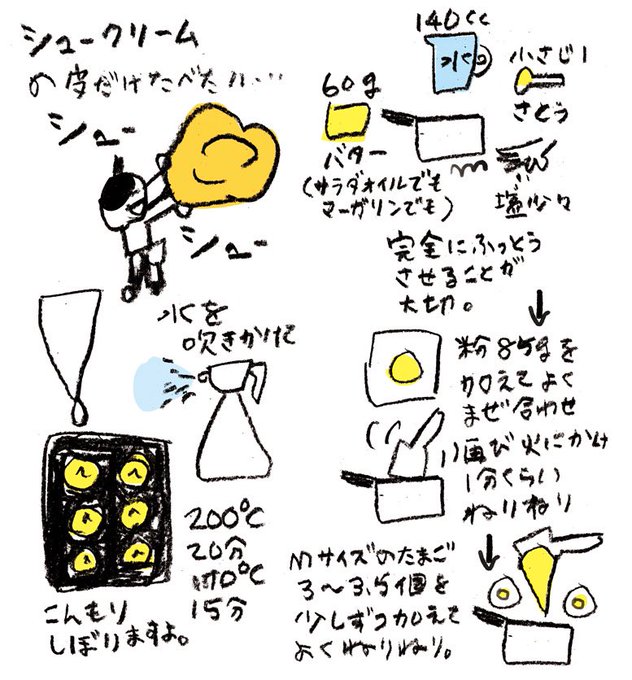 シュークリーム
の皮だけたべたい…
シュー
シュー
140cc
水
小さじ1
さとう
60g
バター
(サラダオイルでも
マーガリンでも)
塩少々
完全にふっとう
させることが
大切。
粉85gを
加えてよく
まぜ合わせ
再び火にかけ
1分くらい
ねりねり
Mサイズのたまご
3〜3.5個を
少しずつ加えて
よくねりねり。
水を
吹きかけた
200℃
20分
170℃
15分
こんもり
しぼりますよ。